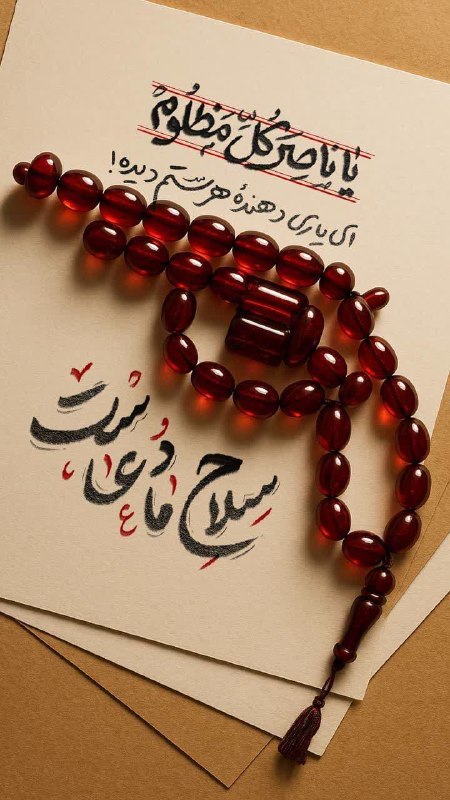 یا ناصِرَ کُلِّ مَظلُومٍ
ای یاری دهندهٔ هر ستم دیده!
سلاح ما دعاست